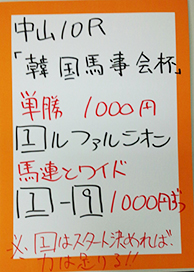 中山10R
「韓国馬事会杯」
単勝 1000円
1ルファルシオン
馬連とワイド
1-9 1000円ずつ
※、1はスタート決めれば、
力は足りる!!